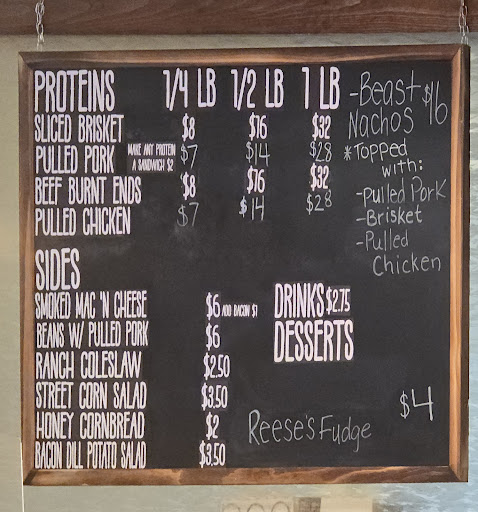 PROTEINS 1/4 LB 1/2 LB 1 LB
SLICED BRISKET $8 $16 $32
PULLED PORK MAKE ANY PROTEIN A SANDWICH $2 $7 $14 $28
BEEF BURNT ENDS $8 $16 $32
PULLED CHICKEN $7 $14 $28
-Beast $16
Nachos
*Topped
with:
-Pulled Pork
-Brisket
-Pulled
Chicken
SIDES
SMOKED MAC 'N CHEESE $6 ADD BACON $1
BEANS W/ PULLED PORK $6
RANCH COLESLAW $2.50
STREET CORN SALAD $3.50
HONEY CORNBREAD $2
BACON DILL POTATO SALAD $3.50
DRINKS $2.75
DESSERTS
Reese's Fudge $4